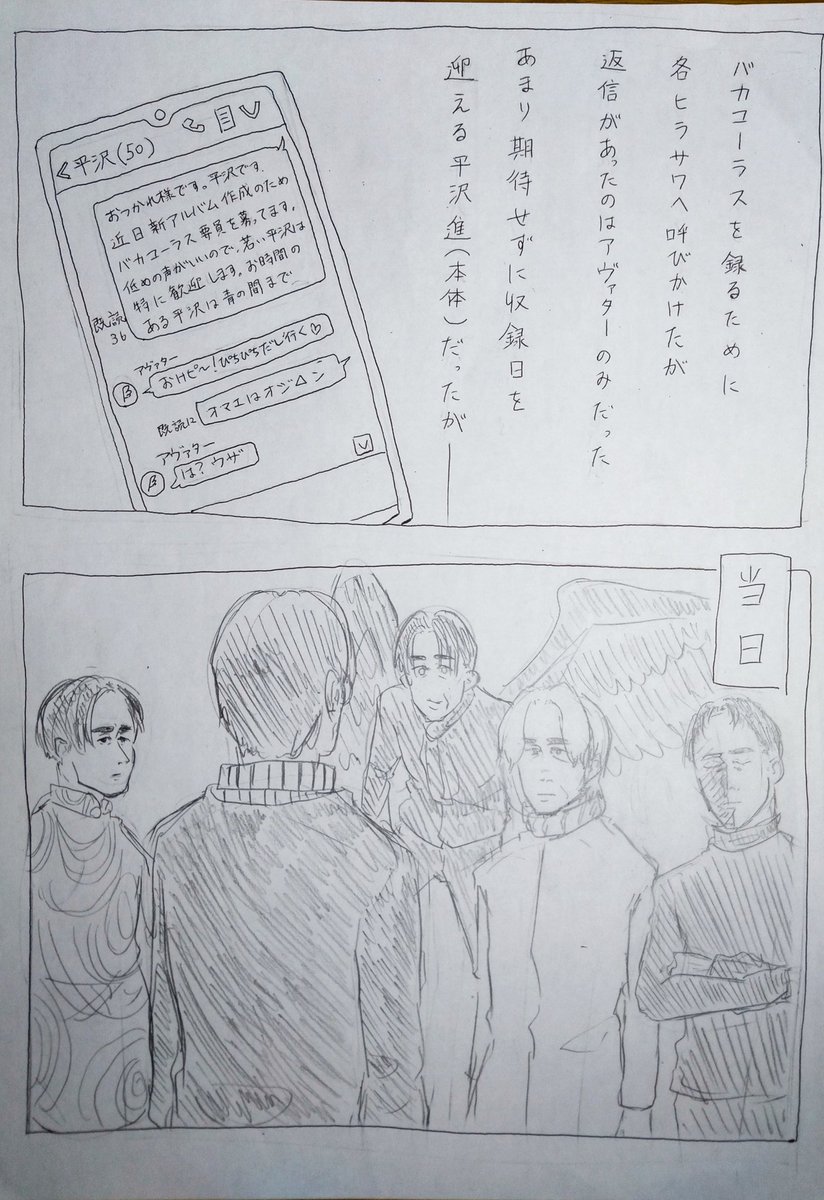 バカコーラスを録るために
各ヒラサワへ呼びかけたが
返信があったのはアヴァターのみだった
あまり期待せずに収録日を
迎える平沢進(本体)だったが――
<平沢(50)
おつかれ様です。平沢です.
近日新アルバム作成のため
バカコーラス要員を募ってます。
低めの声がいいので、若い平沢は
特に歓迎します。お時間の
ある平沢は青の間まで
既読
36
アヴァター
β
おけピ〜!ぴちぴちだし行く♡
オマエはオジ△ン
既読12
アヴァター
β
は?ウザ
当日